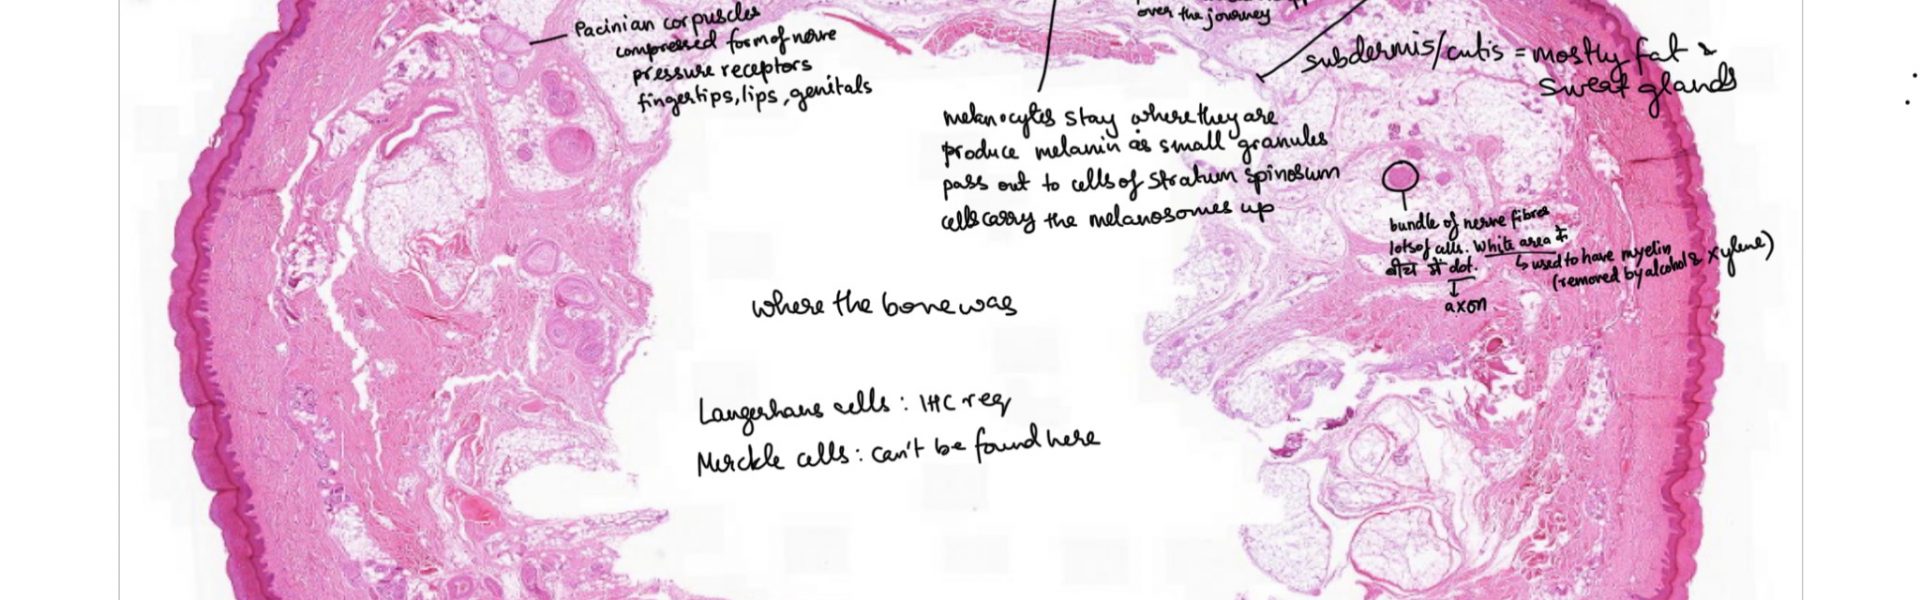 Pacinian corpuscles
compressed form of nerve
pressure receptors
fingertips, lips, genitals
over the journey
subdermis/cutis = mostly fat &
sweat glands
melanocytes stay where they are
produce melanin as small granules
pass out to cells of stratum spinosum
cells carry the melanosomes up
bundle of nerve fibres
lots of cells. White area के
बीच में dot.
↳ used to have myelin
(removed by alcohol & xylene)
↓
axon
where the bone was
Langerhans cells : IHC req
Merckle cells : can't be found here